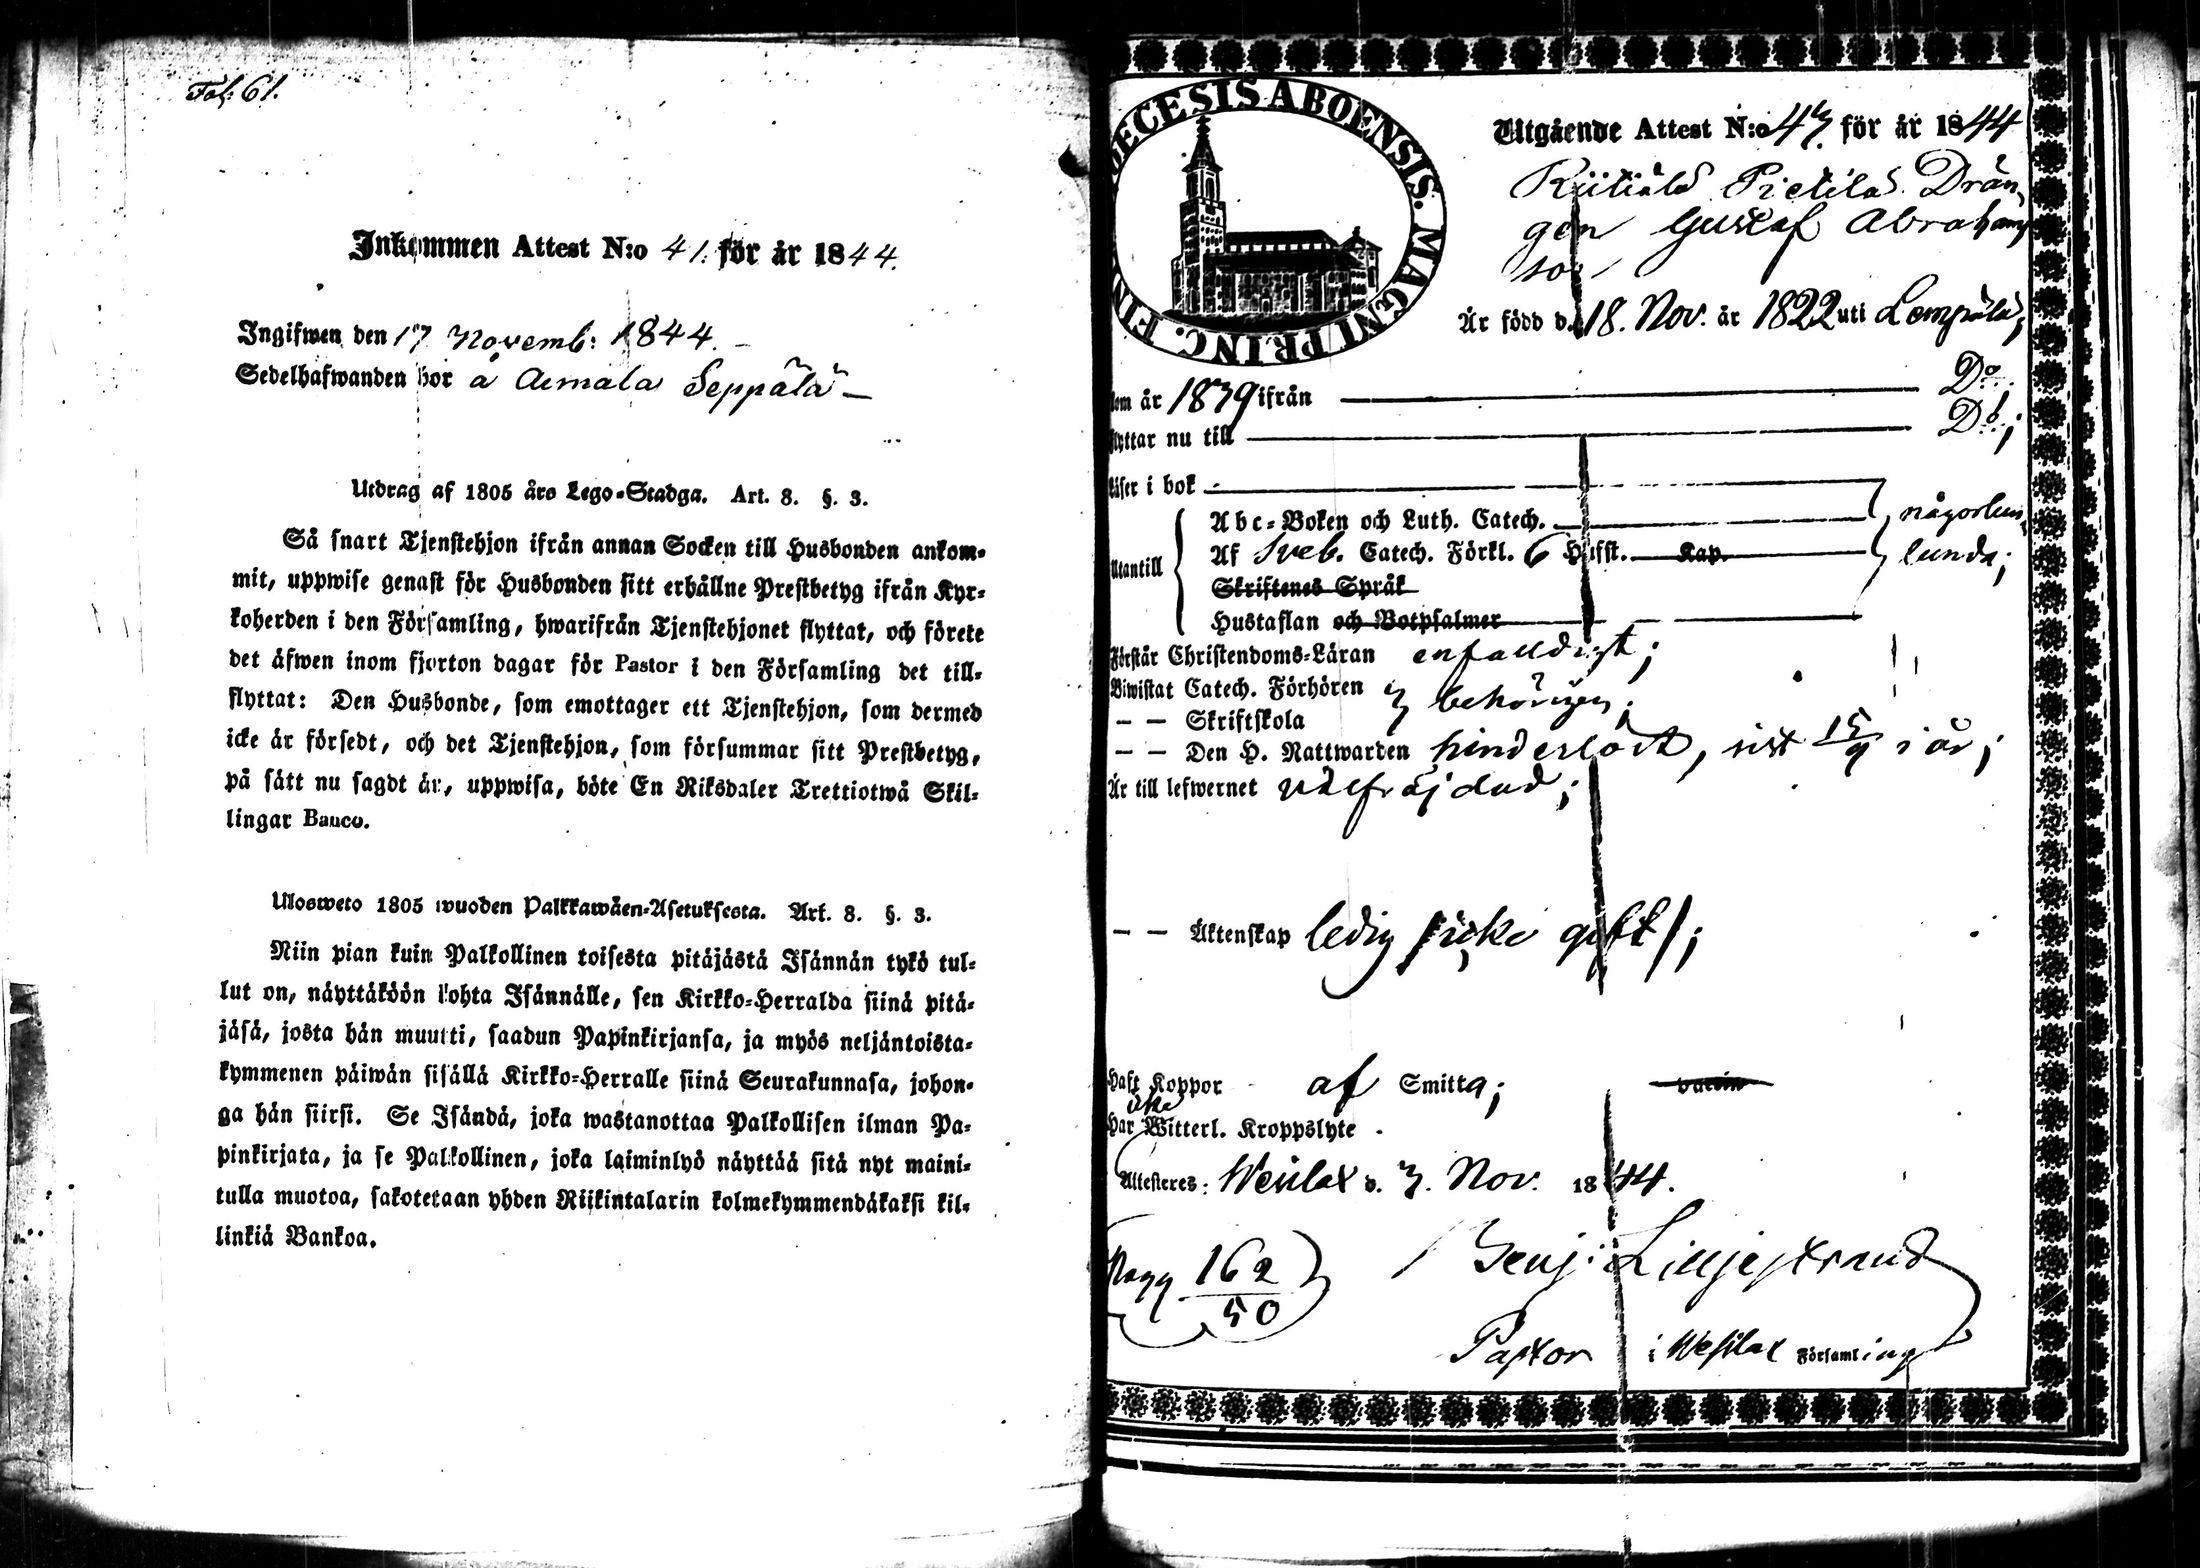 Fol: 61.
Inkommen Attest N:o 41. för år 1844.
Ingifwen den 17 Novemb: 1844. –
Sedelhafwanden bor å Aimala Seppälä –
Utdrag af 1805 års Lego-Stadga. Art. 8. §. 3.
Så snart Tjenstehjon ifrån annan Socken till Husbonden ankom-
mit, uppwise genast för Husbonden sitt erhållne Prestbetyg ifrån Kyr-
koherden i den Församling, hwarifrån Tjenstehjonet flyttat, och förete
det äfwen inom fjorton dagar för Pastor i den Församling det till-
flyttat: Den Husbonde, som emottager ett Tjenstehjon, som dermed
icke är försedt, och det Tjenstehjon, som försummar sitt Prestbetyg,
på sätt nu sagdt är, uppwisa, böte En Riksdaler Trettiotwå Skil-
lingar Banco.
Ulosweto 1805 wuoden Palkkawäen-Asetuksesta. Art. 8. §. 3.
Niin pian kuin Palkollinen toisesta pitäjästä Isännän tykö tul-
lut on, näyttäköön kohta Isännälle, sen Kirkko-Herralda siinä pitä-
jäsä, josta hän muutti, saadun Papinkirjansa, ja myös neljäntoista-
kymmenen päiwän sisällä Kirkko-Herralle siinä Seurakunnasa, johon-
ga hän siirsi. Se Isändä, joka wastanottaa Palkollisen ilman Pa-
pinkirjata, ja se Palkollinen, joka laiminlyö näyttää sitä nyt maini-
tulla muotoa, sakotetaan yhden Riikintalarin kolmekymmendäkaksi kil-
linkiä Bankoa.
DECESIS ABOENSIS. MAGNI PRINC. FIN
Utgående Attest N:o 43. för år 1844
Kiitiälä Pietilas Drän-
gen Gustaf Abrahams
son
Är född d. 18. Nov. år 1822 uti Lempälä;
kom år 1839 ifrån Do.
flyttar nu till Do;
Läser i bok
Abc-Boken och Luth. Catech. någorlun-
Utantill Af Sveb. Catech. Förkl. 6 Hufst. Kap. lunda;
Skriftenes Språk
Hustaflan och Botpsalmer
Förstår Christendoms-Läran enfalldigt;
Biwistat Catech. Förhören
— — Skriftskola behörigen;
— — Den H. Nattwarden hinderlöst, sist 15/9 i år;
Är till lefwernet välfräjdad;
— — Äktenskap ledig /icke gift/;
Haft Koppor af Smitta; vaccin
icke
Har Witterl. Kroppslyte .
Attesteres: Wesilax d. 3. Nov. 1844.
Pagg 162/50
Benj: Lilljestrand
Pastor i Wesilax Församling